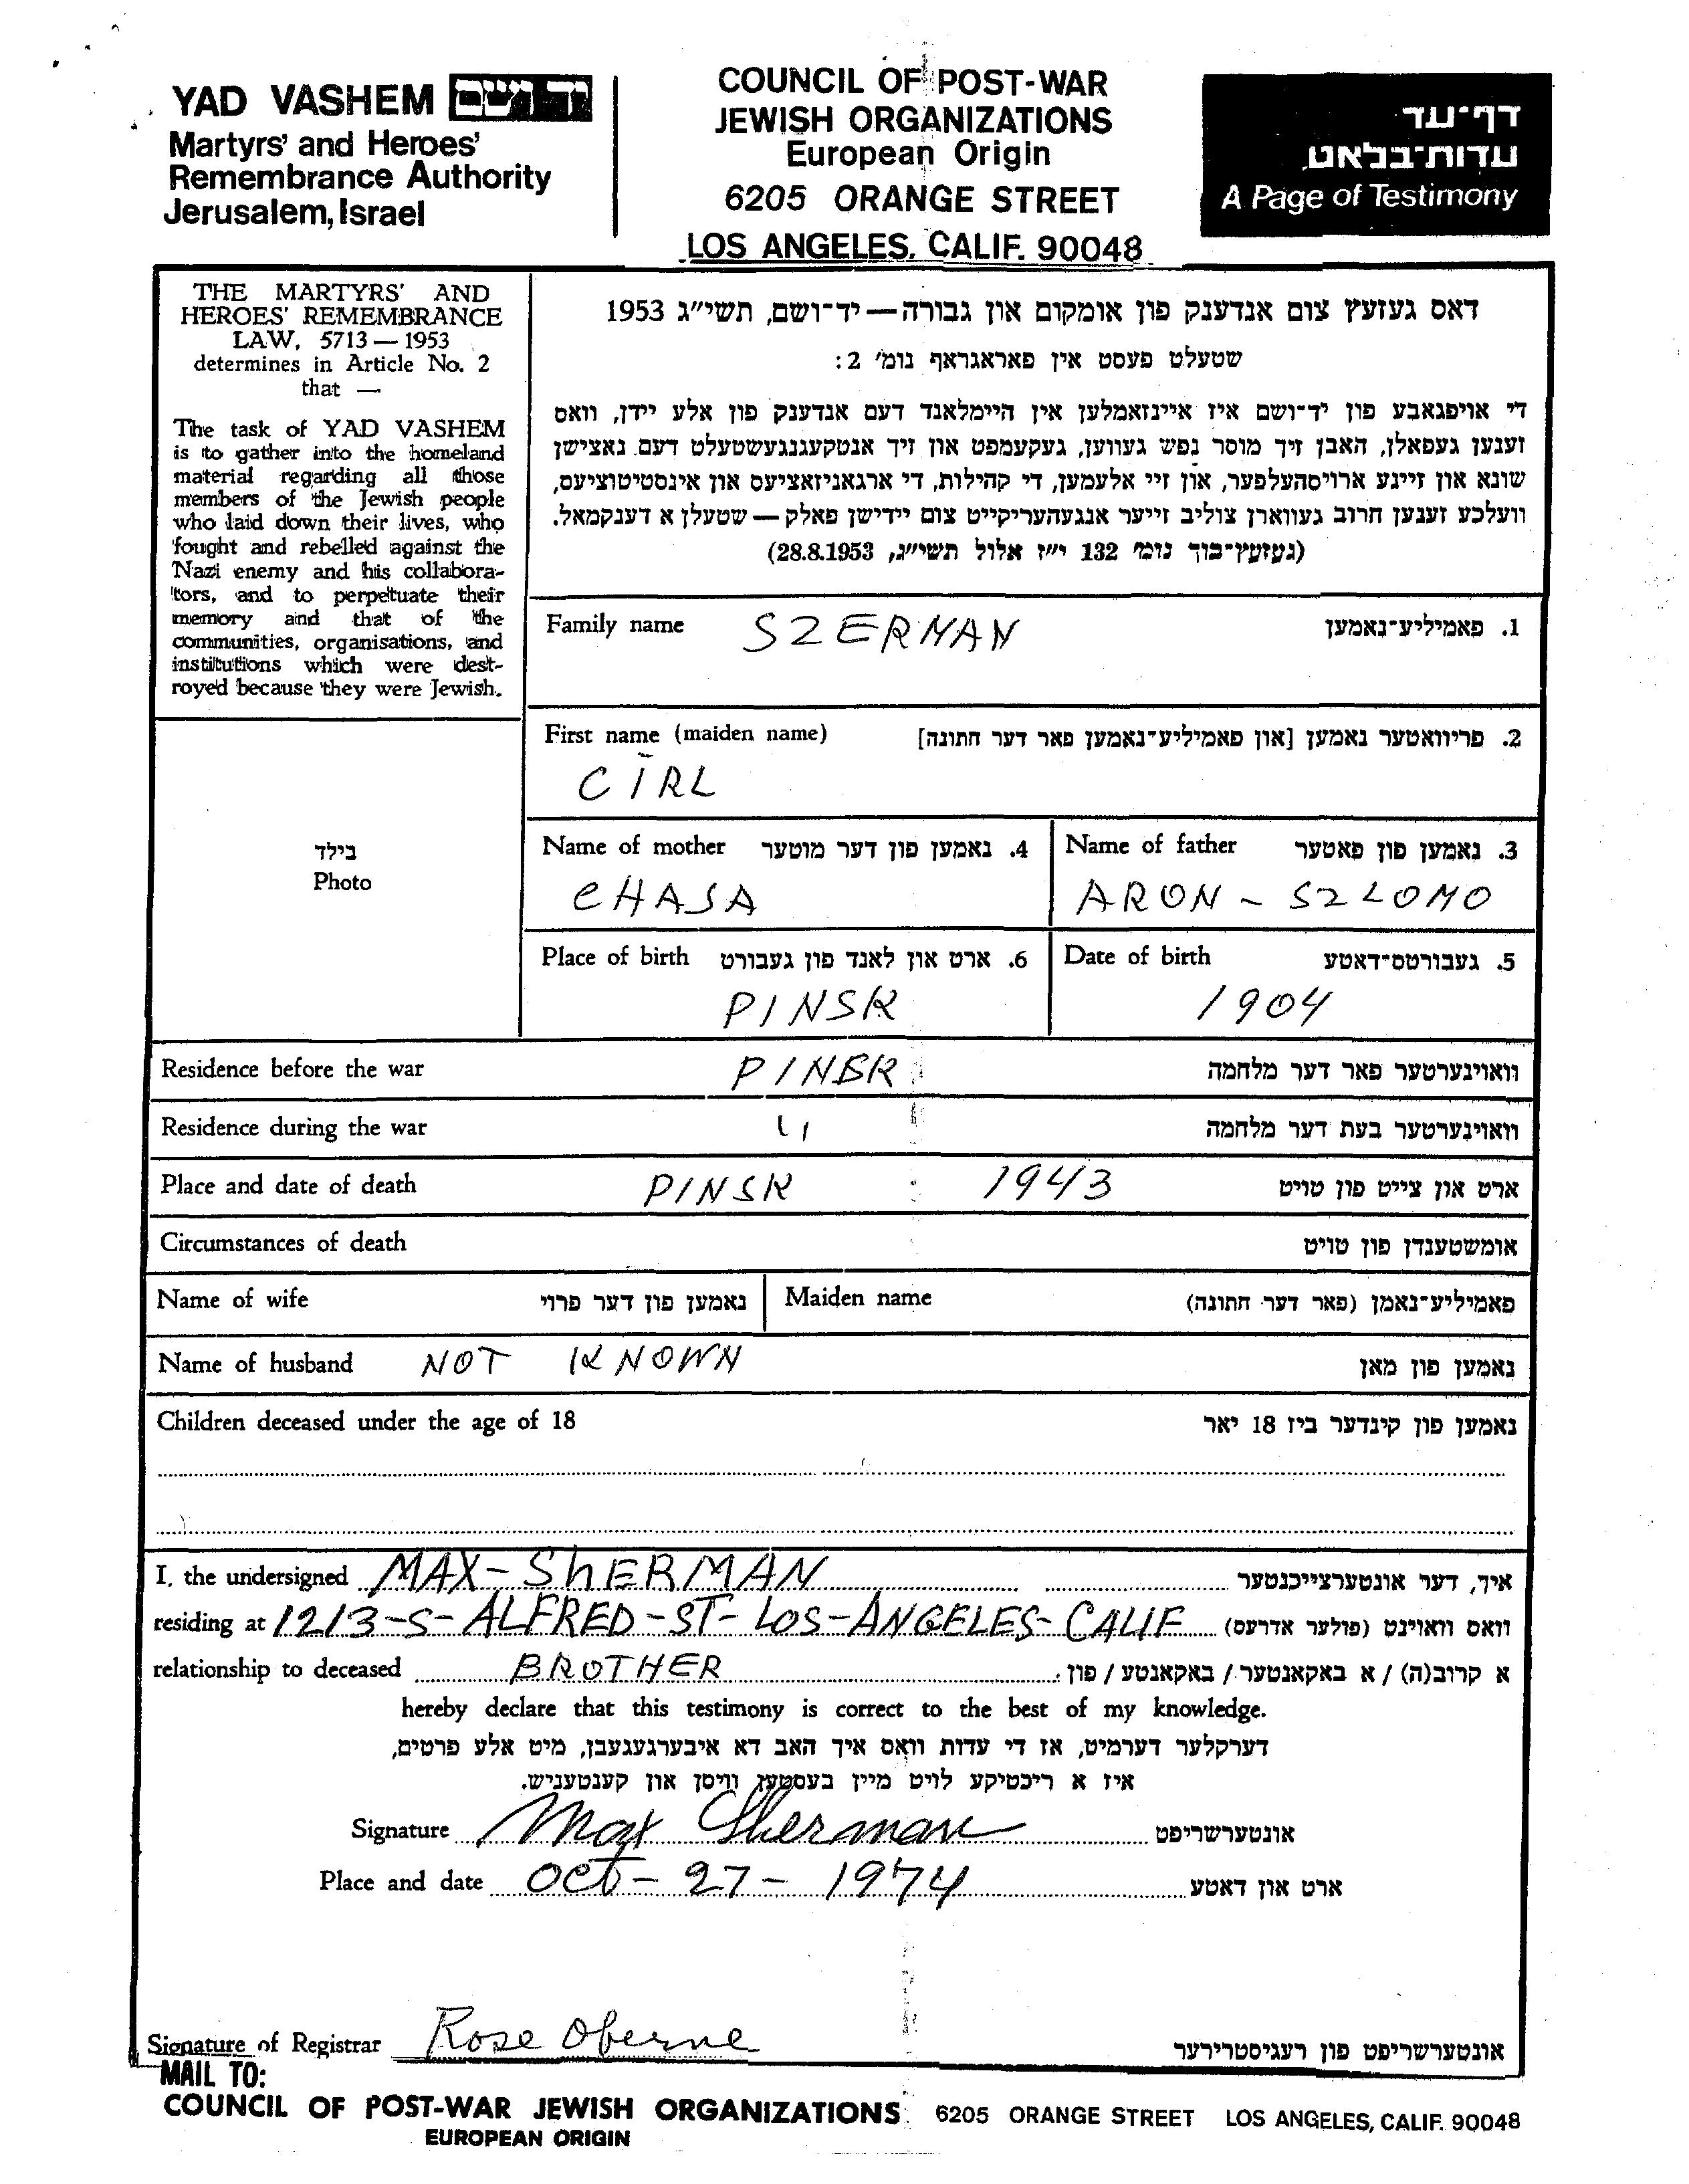 YAD VASHEM יד ושם
Martyrs' and Heroes'
Remembrance Authority
Jerusalem, Israel
COUNCIL OF POST-WAR
JEWISH ORGANIZATIONS
European Origin
6205 ORANGE STREET
LOS ANGELES, CALIF. 90048
דף־עד
עדות־בלאט
A Page of Testimony
THE MARTYRS' AND
HEROES' REMEMBRANCE
LAW, 5713 — 1953
determines in Article No. 2
that —
The task of YAD VASHEM
is to gather into the homeland
material regarding all those
members of the Jewish people
who laid down their lives, who
fought and rebelled against the
Nazi enemy and his collabora-
tors, and to perpetuate their
memory and that of the
communities, organisations, and
institutions which were dest-
royed because they were Jewish.
דאס געזעץ צום אנדענק פון אומקום און גבורה — יד־ושם, תשי״ג 1953
שטעלט פעסט אין פאראגראף נומ׳ 2:
די אויפגאבע פון יד־ושם איז איינזאמלען אין היימלאנד דעם אנדענק פון אלע יידן, וואס
זענען געפאלן, האבן זיך מוסר נפש געווען, געקעמפט און זיך אנטקעגנגעשטעלט דעם נאצישן
שונא און זיינע ארויסהעלפער, און זיי אלעמען, די קהילות, די ארגאניזאציעס און אינסטיטוציעס,
וועלכע זענען חרוב געווארן צוליב זייער אנגעהעריקייט צום יידישן פאלק — שטעלן א דענקמאל.
(געזעץ־בוך נומ׳ 132 י״ז אלול תשי״ג, 28.8.1953)
Family name SZERMAN 1. פאמיליע־נאמען
First name (maiden name) 2. פריוואטער נאמען [און פאמיליע־נאמען פאר דער חתונה]
CIRL
בילד
Photo
Name of mother 4. נאמען פון דער מוטער
CHASA
Name of father 3. נאמען פון פאטער
ARON - SZLOMO
Place of birth 6. ארט און לאנד פון געבורט
PINSK
Date of birth 5. געבורטס־דאטע
1904
Residence before the war PINSK וואוינערטער פאר דער מלחמה
Residence during the war " וואוינערטער בעת דער מלחמה
Place and date of death PINSK 1943 ארט און צייט פון טויט
Circumstances of death אומשטענדן פון טויט
Name of wife נאמען פון דער פרוי Maiden name פאמיליע־נאמן (פאר דער חתונה)
Name of husband NOT KNOWN נאמען פון מאן
Children deceased under the age of 18 נאמען פון קינדער ביז 18 יאר
I, the undersigned MAX-ShERMAN איך, דער אונטערצייכנטער
residing at 1213-S-ALFRED-ST-LOS-ANGELES-CALIF וואס וואוינט (פולער אדרעס)
relationship to deceased BROTHER א קרוב(ה) / א באקאנטער / באקאנטע / פון:
hereby declare that this testimony is correct to the best of my knowledge.
דערקלער דערמיט, אז די עדות וואס איך האב דא איבערגעגעבן, מיט אלע פרטים,
איז א ריכטיקע לויט מיין בעסטען וויסן און קענטעניש.
Signature Max Sherman אונטערשריפט
Place and date OCT-27-1974 ארט און דאטע
Signature of Registrar Rose Oberne אונטערשריפט פון רעגיסטרירער
MAIL TO:
COUNCIL OF POST-WAR JEWISH ORGANIZATIONS 6205 ORANGE STREET LOS ANGELES, CALIF. 90048
EUROPEAN ORIGIN